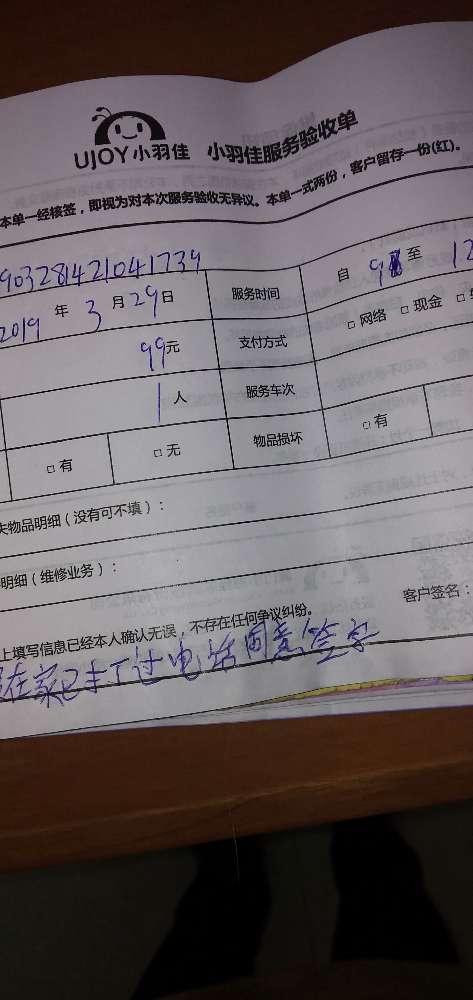 UJOY小羽佳 小羽佳服务验收单
本单一经核签，即视为对本次服务验收无异议。本单一式两份，客户留存一份(红)。
903281421041739
2019年3月29日 服务时间 自9至12
99元 支付方式 □网络 □现金
1人 服务车次
□有 □无 物品损坏 □有
失物品明细（没有可不填）：
明细（维修业务）：
客户签名：
上填写信息已经本人确认无误，不存在任何争议纠纷。
在家已打过电话同意签字